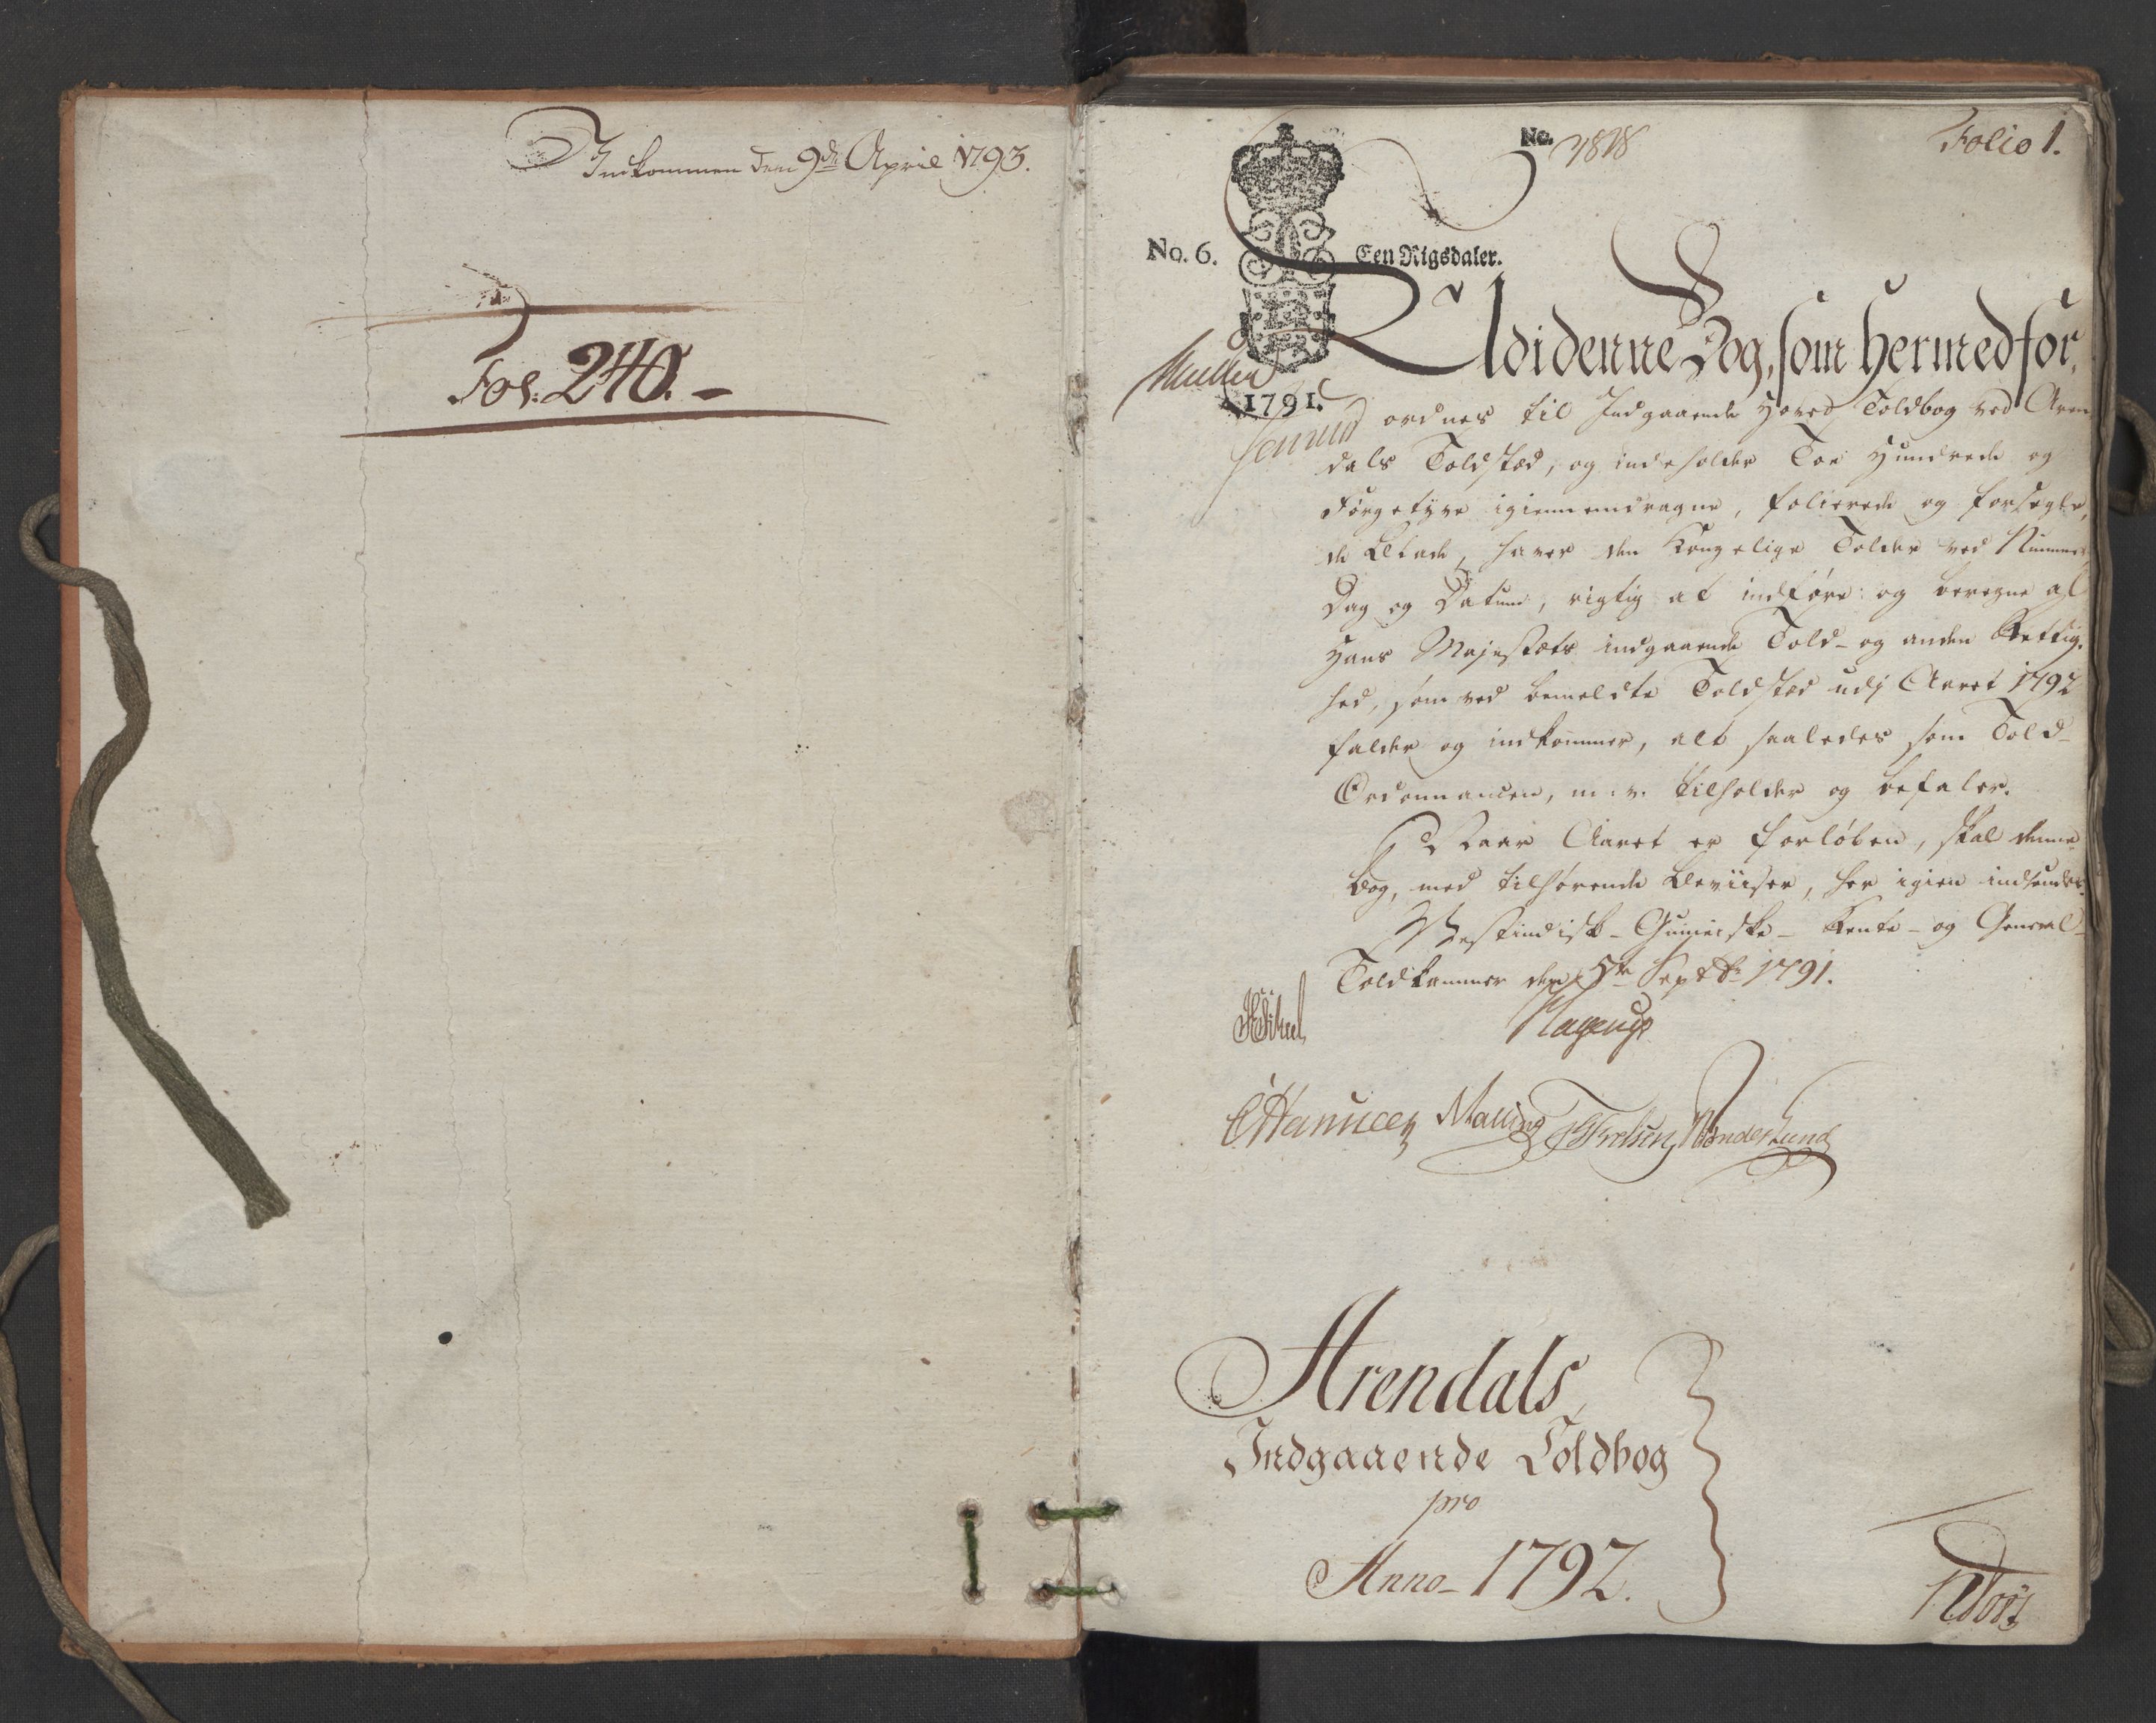 Indkommen den 9de April 1793.
Fol: 240. -
No. 7818
Folio 1.
No. 6.
Een Rigsdaler.
Udi denne Bog, som hermed for,
Muller
1791.
ordnes til Indgaaende Hoved Toldbog ved Aren
dals Toldsted, og indeholder Toe Hundrede og
Førgetyve igiennemdragne, folierede og forsegle,
de Blade, haver den Kongelige Tolder ved Nummer
Dag og Datum, rigtig at indføre og beregne al
Hans Majestæts indgaaende Told- og anden Rettig,
hed, som ved bemeldte Toldsted udj Aaret 1792
falder og indkommer, alt saaledes som Told-
Ordonnancen, m: v: tilholder og befaler.
Og naar Aaret er forløben, skal denne
Bog, med tilhørende Beviiser, her igien indsendes.
Vestindisk- Guineiske- Rente- og General-
Toldkammer den 5te Septbr 1791.
Hagerup
Malling
Wonderlund
Arendals
Indgaaende Toldbog
pro
Anno- 1792.